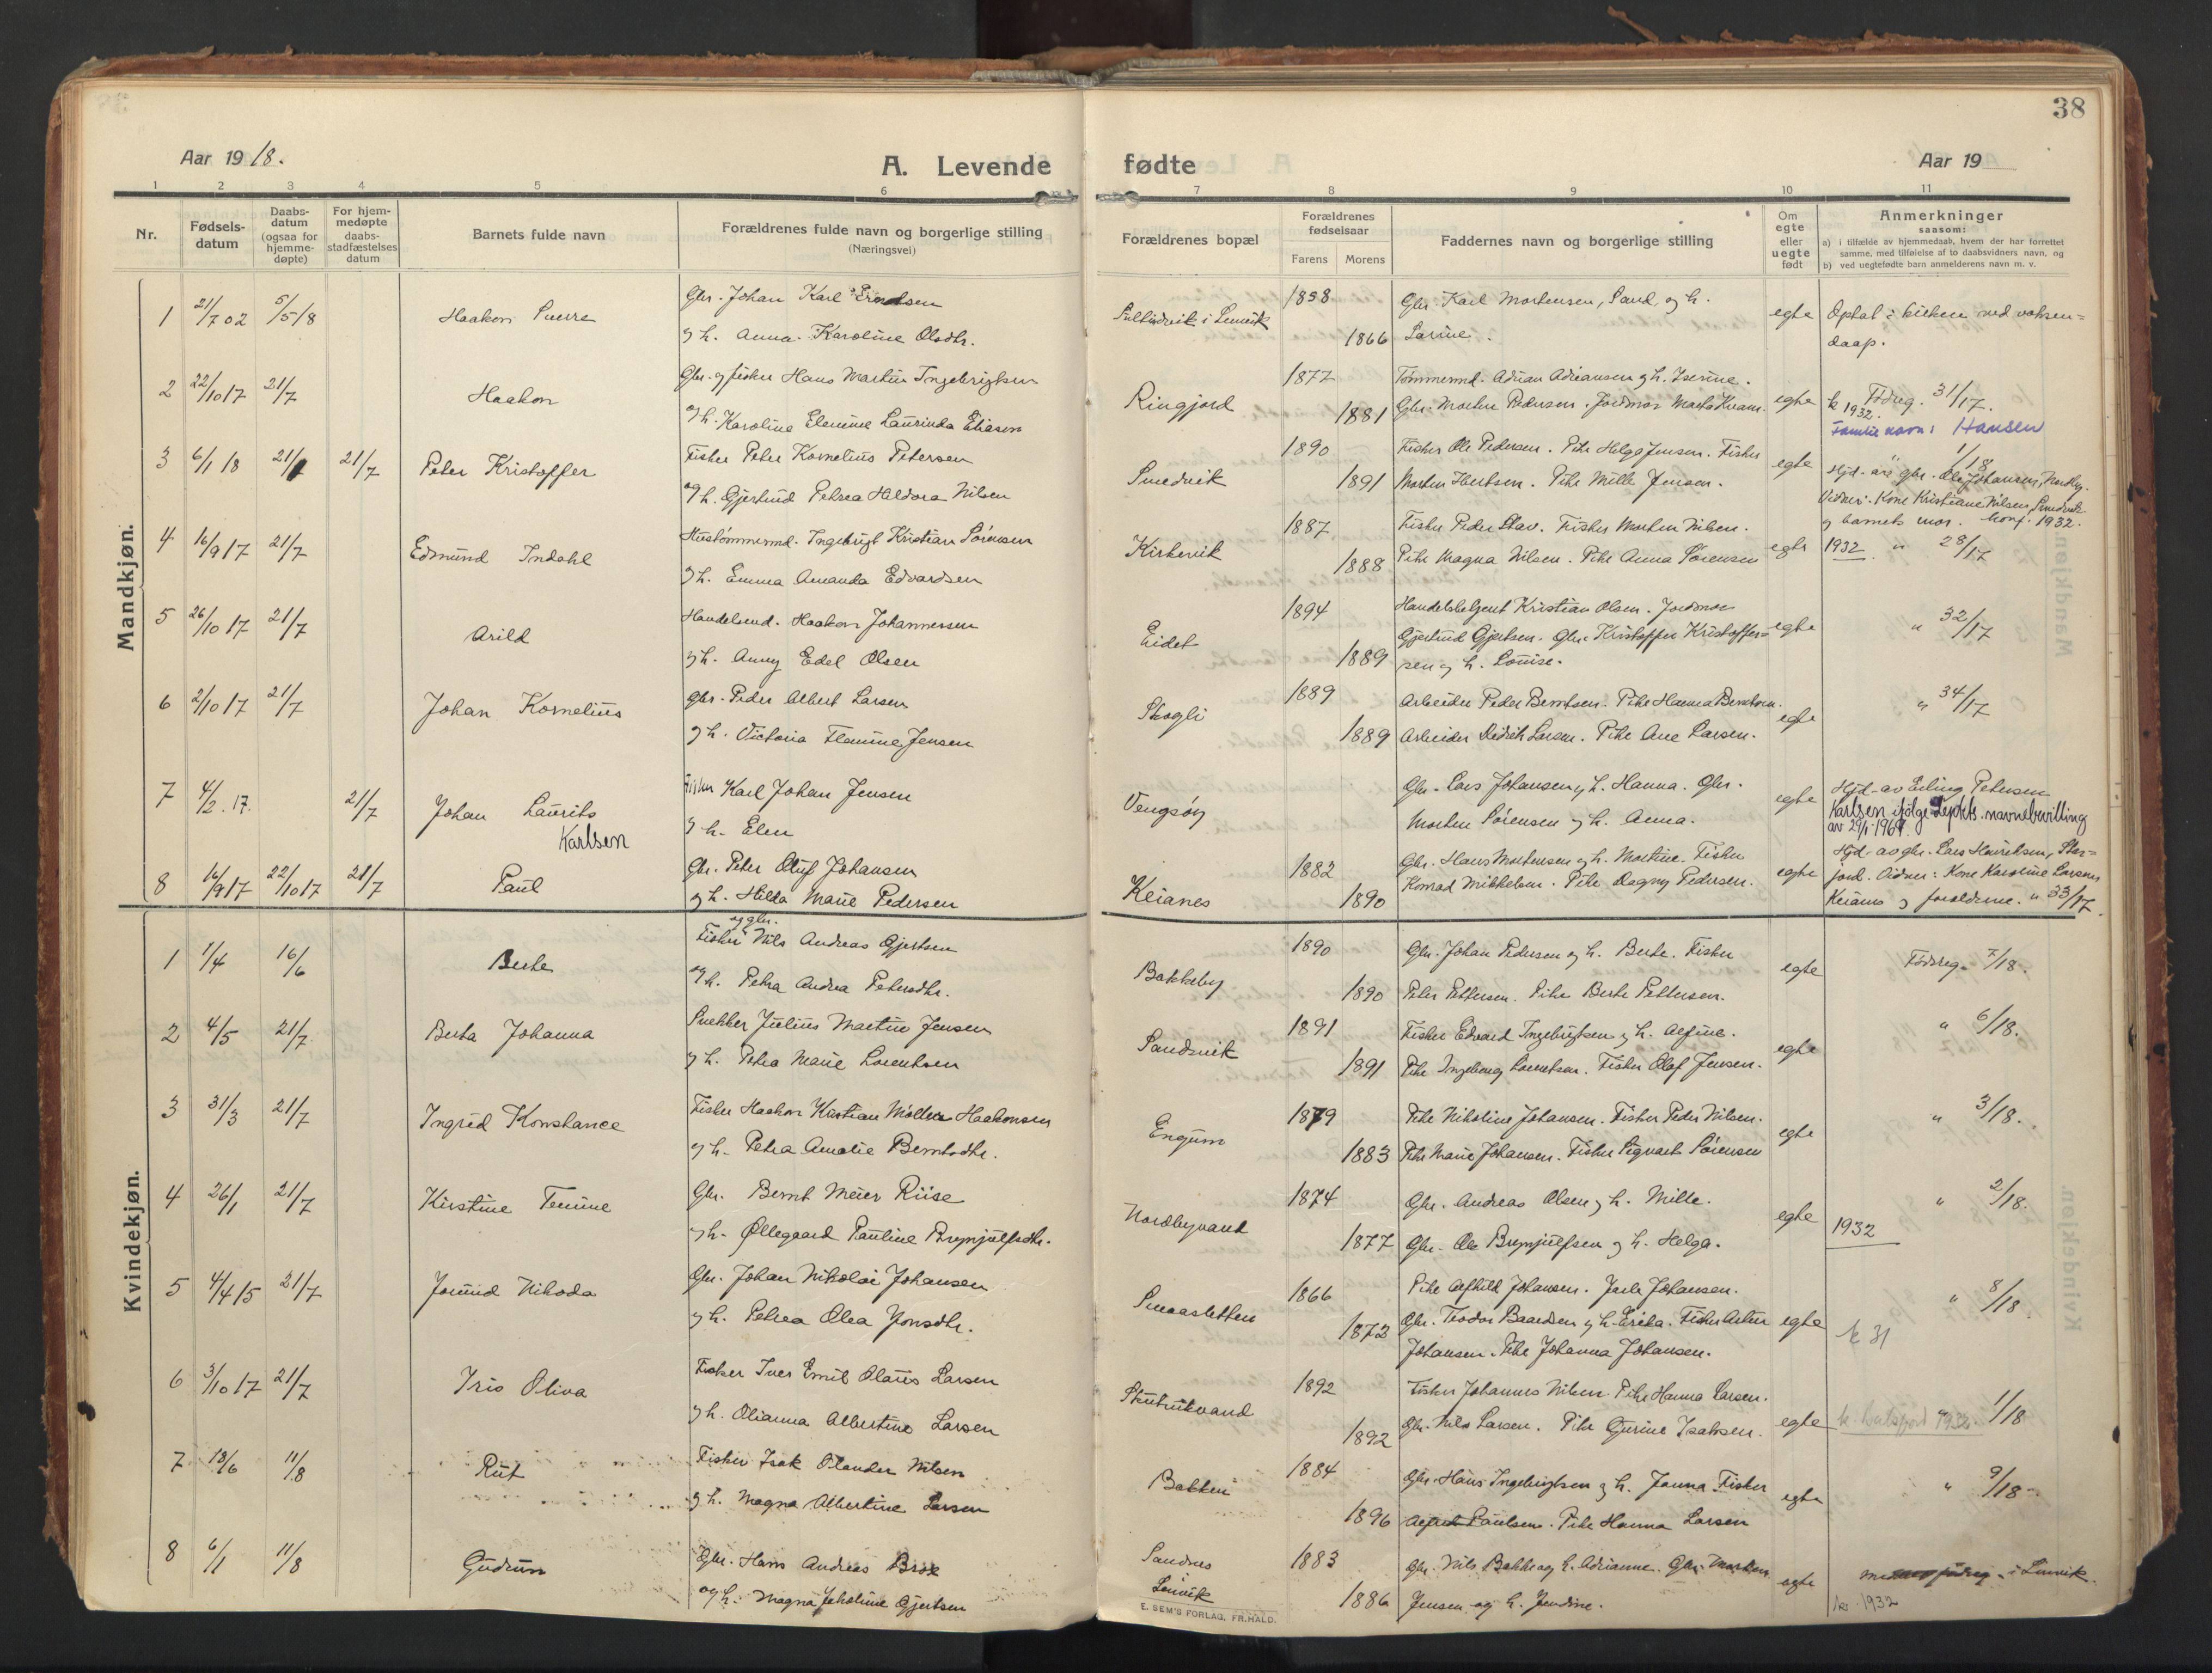 38
Aar 1918.
A. Levende fødte
Aar 19
1 2 3 4 5 6 7 8 9 10 11
Nr.
Fødsels-
datum
Daabs-
datum
(ogsaa for
hjemme-
døpte)
For hjem-
medøpte
daabs-
stadfæstelses
datum
Barnets fulde navn
Forældrenes fulde navn og borgerlige stilling
(Næringsvei)
Forældrenes bopæl
Forældrenes
fødselsaar
Farens Morens
Faddernes navn og borgerlige stilling
Om
egte
eller
uegte
født
Anmerkninger
saasom:
a) i tilfælde av hjemmedaab, hvem der har forrettet
samme, med tilføielse af to daabsvidners navn, og
b) ved uegtefødte barn anmelderens navn m. v.
Mandkjøn.
1 21/7 02 5/5 18 Haakon Sverre
Gbr. Johan Karl Erntsen
og h. Anna Karoline Olsdtr.
i Lenvik
1858
1866
Gbr. Karl Mortensen, Sand og h.
Larine.
egte
Optat i kirken ved voksen-
daap.
2 22/10 17 21/7 Haakon
Gbr. og fisker Hans Martin Ingebrigtsen
og h. Karoline Elenine Laurinda Eliasen
Ringjord
1877
1881
Tømmermd. Adrian Adriansen og h. Iserine.
Gbr. Morten Pedersen. Jordmor Marta Kram.
egte
Fødreg. 31/17.
k 1932.
Familie navn: Hansen
3 6/1 18 21/1 21/7 Peter Kristoffer
Fisker Peter Kornelius Petersen
og h. Gjertrud Petrea Heldora Nilsen
Smedvik
1890
1891
Fisker Ole Pedersen. Pike Helga Jensen. Fisker
Morten Hertsen. Pike Mille Jensen.
egte
1/18
Hjd. av gbr. Ole Johansen, Nordby.
Vidner: Kone Kristiane Nilsen, Smedvik
og barnets mor. konf. 1932.
4 16/9 17 21/7 Edmund Indahl
Hustømmermd. Ingebrigt Kristian Sørensen
og h. Emma Amanda Edvardsen
Kirkevik
1887
1888
Fisker Peder Stav. Fisker Morten Nilsen.
Pike Magna Nilsen. Pike Anna Sørensen
egte
1932 " 28/17
5 26/10 17 21/7 Arild
Handelsmd. Haakon Johannessen
og h. Anny Edel Olsen
Eidet
1894
1889
Handelsbetjent Kristian Olsen. Jordmor
Gjertrud Gjertsen. Gbr. Kristoffer Kristoffer-
sen og h. Louise.
egte
" 32/17
6 2/10 17 21/7 Johan Kornelius
Gbr. Peder Albert Larsen
og h. Victoria Flamine Jensen
Skogli
1889
1889
Arbeider Peder Berntsen. Pike Hanna Berntsen.
Arbeider Didrik Larsen. Pike Ane Larsen.
egte
" 34/17
7 4/2. 17. 21/7 Johan Laurits
Karlsen
Fisker Karl Johan Jensen
og h. Elen
Vengsøy
Gbr. Lars Johansen og h. Hanna. Gbr.
Morten Sørensen og h. Anna.
egte
Hjd. av Erling Petersen
Karlsen ifølge Jdepkts. navnebevilling
av 29/1-1969.
8 16/9 17 22/10 17 21/7 Paul
Gbr. Peter Oluf Johansen
og h. Hilda Marie Pedersen
Keianes
1882
1890
Gbr. Hans Mortensen og h. Martine. Fisker
Konrad Mikkelsen. Pike Dagny Pedersen.
egte
Hjd. av gbr. Lars Henriksen, Stor-
jord. Vidner: Kone Karoline Larsen,
Keianes og forældrene. " 33/17.
Kvindekjøn.
1 1/4 16/6 Berte
og gbr.
Fisker Nils Andreas Gjertsen
og h. Petra Andrea Petersdtr.
Bakkeby
1890
1890
Gbr. Johan Pedersen og h. Berte. Fisker
Peter Pettersen. Pike Berte Pettersen.
egte
Fødreg. 7/18.
2 4/5 21/7 Berta Johanna
Snekker Julius Martin Jensen
og h. Petra Marie Lorentsen
Sandsvik
1891
1891
Fisker Edvard Ingebrigtsen og h. Alfine.
Pike Ingeborg Lorentsen. Fisker Olaf Jensen.
egte
" 6/18.
3 31/3 21/7 Ingrid Konstance
Fisker Haakon Kristian Møller Haakonsen
og h. Petra Amalie Berntsdtr.
Engum
1879
1883
Pike Nikoline Johansen. Fisker Peder Nilsen.
Pike Marie Johansen. Fisker Sigvart Sørensen
egte
" 3/18.
4 26/1 21/7 Kirstine Temine
Gbr. Bernt Meier Riise
og h. Øllegaard Pauline Brynjulfsdtr.
Nordbyvand
1874
1877
Gbr. Andreas Olsen og h. Mille.
Gbr. Ole Brynjulfsen og h. Helga.
egte
" 2/18.
1932
5 4/4 15 21/7 Jorund Nikoda
Gbr. Johan Nikolai Johansen
og h. Petrea Olea Jonsdtr.
Smaasletten
1866
1872
Pike Alfhild Johansen. Jarle Johansen.
Gbr. Teodor Baardsen og h. Erika. Fisker Artur
Johansen. Pike Johanna Johansen.
egte
" 8/18
k 31
6 3/10 17 21/7 Iris Oliva
Fisker Iver Emil Olaus Larsen
og h. Olianna Albertine Larsen
Skutvikvand
1892
1892
Fisker Johannes Nilsen. Pike Hanna Larsen.
Gbr. Nils Larsen. Pike Gurine Isaksen.
egte
k. Balsfjord 1932. " 1/18
7 18/6 11/8 Rut
Fisker Isak Olander Nilsen
og h. Magna Albertine Larsen
Bakken
1884
1896
Gbr. Hans Ingebrigtsen og h. Janna. Fisker
Alfred Paulsen. Pike Hanna Larsen
egte
" 9/18
8 6/1 11/8 Gudrun
Gbr. Hans Andreas Brox
og h. Magna Jekoline Gjertsen
Sandnes
i
Lenvik
1883
1886
Gbr. Nils Bakke og h. Adrianne. Gbr. Morten
Jensen og h. Jendine.
egte
i Lenvik.
k. 1932
E. SEM'S FORLAG, FR.HALD.